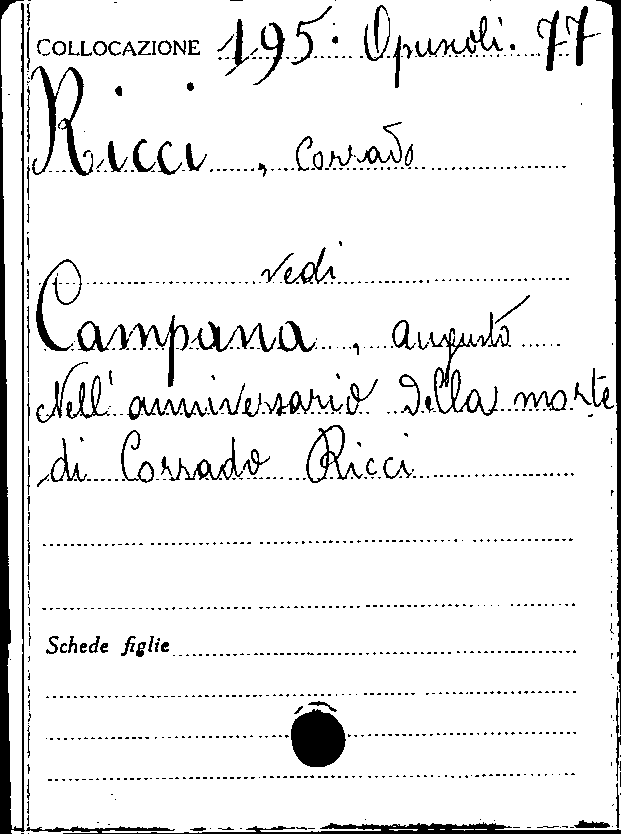 COLLOCAZIONE 195. Opuscoli. 77
Ricci, Corrado
vedi
Campana, Augusto
Nell'anniversario della morte
di Corrado Ricci
Schede figlie